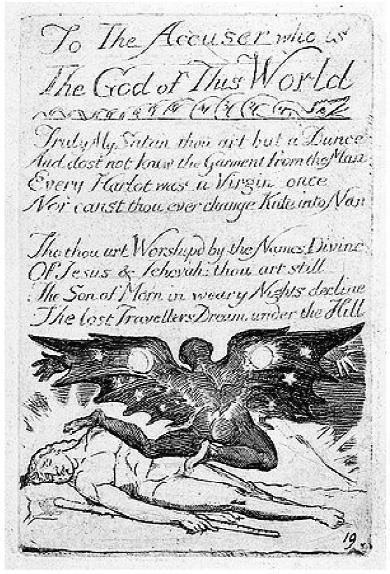 To The Accuser who is
The God of This World
Truly My Satan thou art but a Dunce
And dost not know the Garment from the Man
Every Harlot was a Virgin once
Nor canst thou ever change Kate into Nan
Tho thou art Worshipd by the Names Divine
Of Jesus & Jehovah: thou art still
The Son of Morn in weary Nights decline
The lost Travellers Dream under the Hill
19